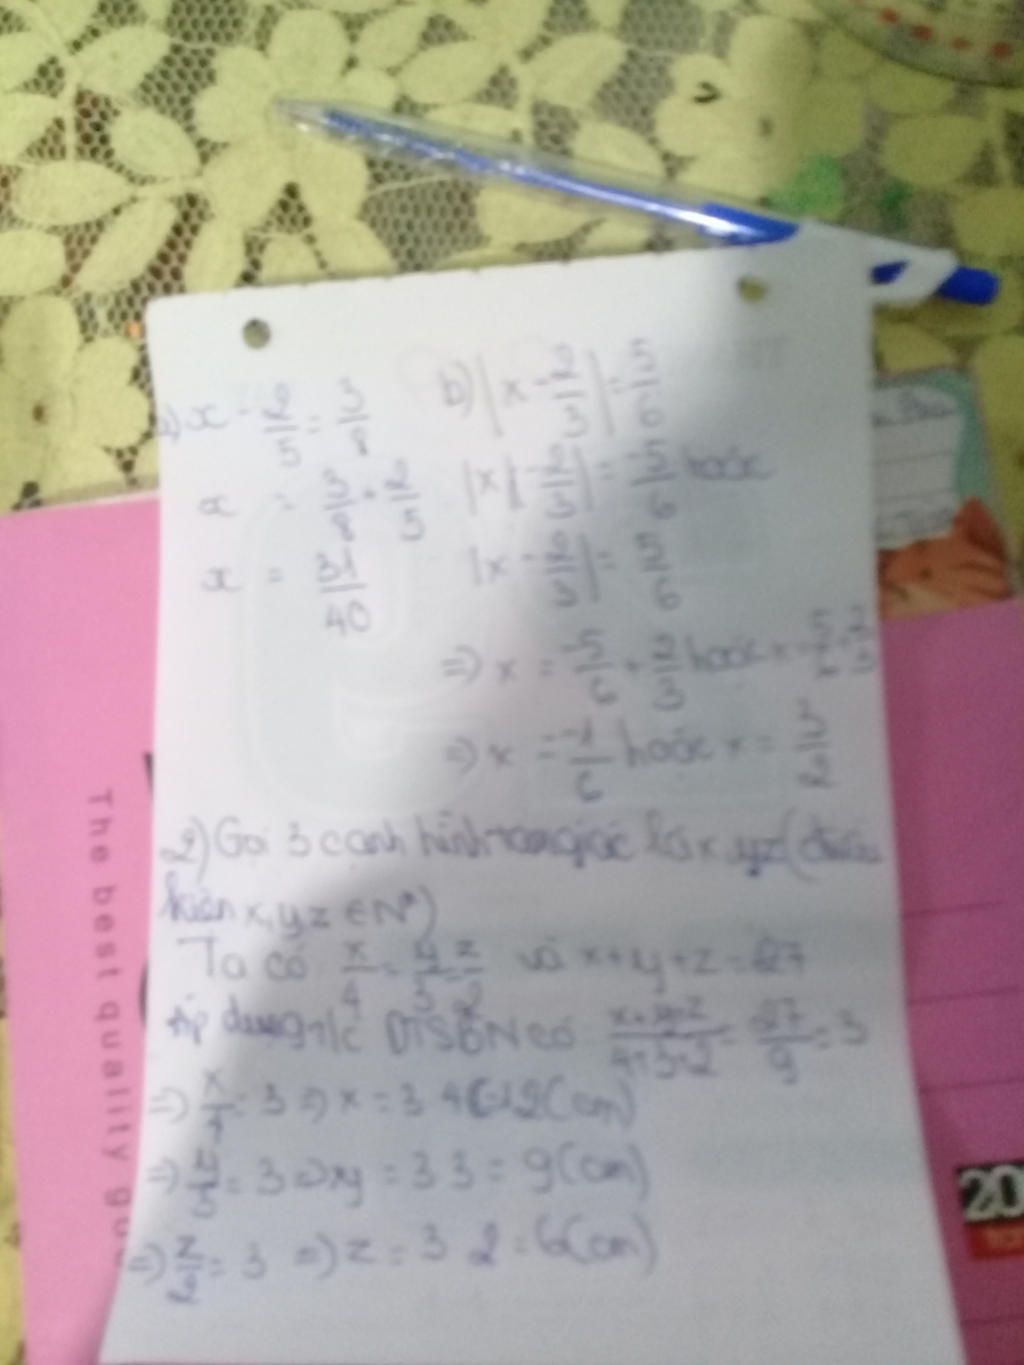 a) x - 2/5 = 3/8
x = 3/8 + 2/5
x = 31/40
b) |x - 2/3| = 5/6
hoặc
|x - 2/3| = 5/6
=> x = -5/6 + 2/3 hoặc x =
=> x = -1/6 hoặc x = 3/2
2) Gọi 3 cạnh hình tam giác là x,yz (điều
kiện x,y z ∈ N*)
Ta có x/4 = y/3 = z/2 và x+y+z = 27
Áp dụng t/c DTSBN có x+y+z/4+3+2 = 27/9 = 3
=> x/4 = 3 => x = 3 4 = 12(cm)
=> y/3 = 3 => y = 3 3 = 9(cm)
=> z/2 = 3 => z = 3 2 = 6(cm)
The best quality
20